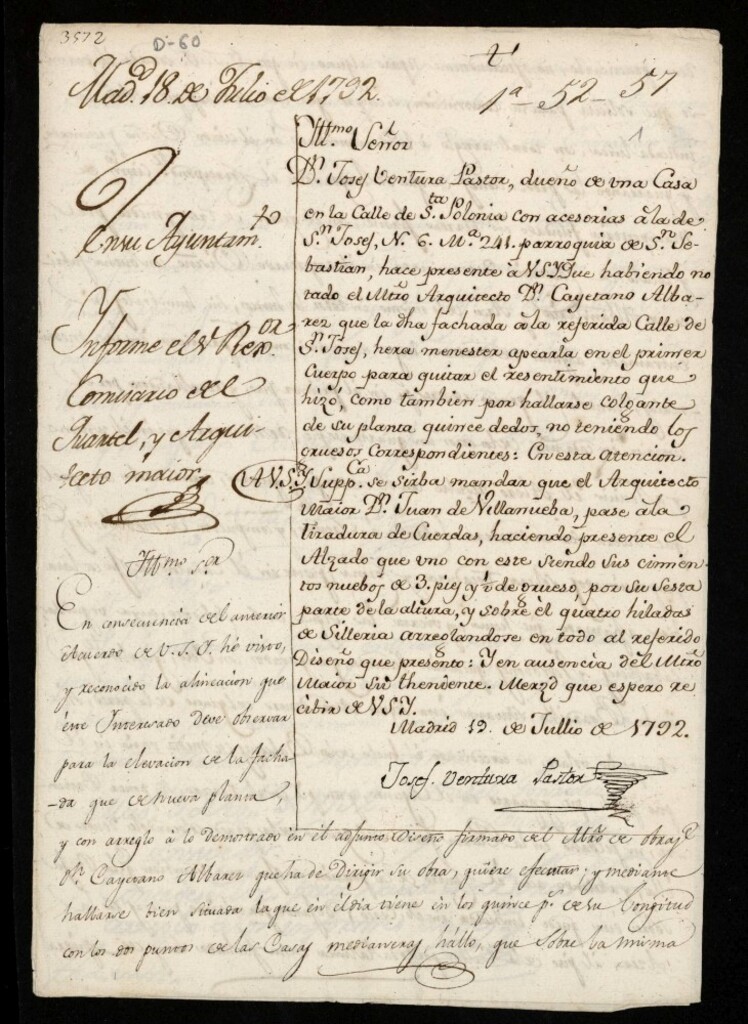 3572
D-60
Mad.d 18. de Julio de 1792.
1a - 52 - 57
1
En su Ayuntam.to
Ynforme el Sr Rex.or
Comisario del
Quartel, y Arqui-
tecto maior
Illmo. Señor
Dn. Josef Ventura Pastor, dueño de vna Casa
en la Calle de S.ta Polonia con acesorias à la de
S.n Josef, N. 6. M.a 241. parroquia de S.n Se-
bastian, hace presente à VSY. Que habiendo no
tado el Mtrō Arquitecto Dn. Cayetano Alba-
rez que la dha fachada à la referida Calle de
S.n Josef, hera menester apearla en el primer
Cuerpo para quitar el resentimiento que
hizó, como tambien por hallarse colgante
de su planta quince dedos, no teniendo los
gruesos Correspondientes: En esta atencion.
A V.S.Y. Supp.ca se sirba mandar que el Arquitecto
Maior Dn. Juan de Villanueba, pase à la
tiradura de Cuerdas, haciendo presente el
Alzado que vno con este siendo sus cimien-
tos nuebos de 3. pies y ½ de grueso, por su sesta
parte de la altura, y sobre el quatro hiladas
de Silleria arreglandose en todo al referido
Diseño que presento: Y en ausencia del Mtrō
Maior su thendente. Merzd que espero re
cibir de VSY.
Madrid 12. de Jullio de 1792.
Josef. Ventura Pastor
Illmo. Sor
En consecuencia del anterior
Acuerdo de V.S.I. hé visto,
y reconocido la alineacion que
este Interesado deve observar
para la elevacion de la facha
-da que de nueva planta,
y con arreglo à lo demostrado en el adjunto Diseño firmado del Mtrō de obras
Dn. Cayetano Albarez que ha de Dirigir su obra, quiere efectuar; y mediante
hallarse bien situada la que en el dia tiene en los quince p.s de su longitud
con los dos puntos de las Casas medianeras hállo, que sobre la misma